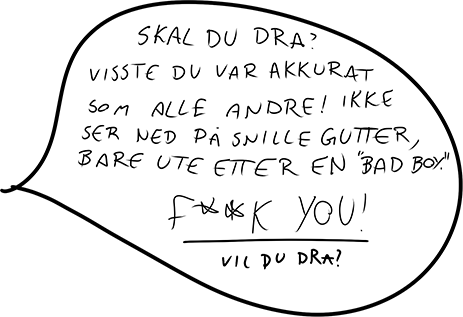 SKAL DU DRA?
VISSTE DU VAR AKKURAT
SOM ALLE ANDRE! IKKE
SER NED PÅ SNILLE GUTTER,
BARE UTE ETTER EN "BAD BOY."
F**K YOU!
VIL DU DRA?